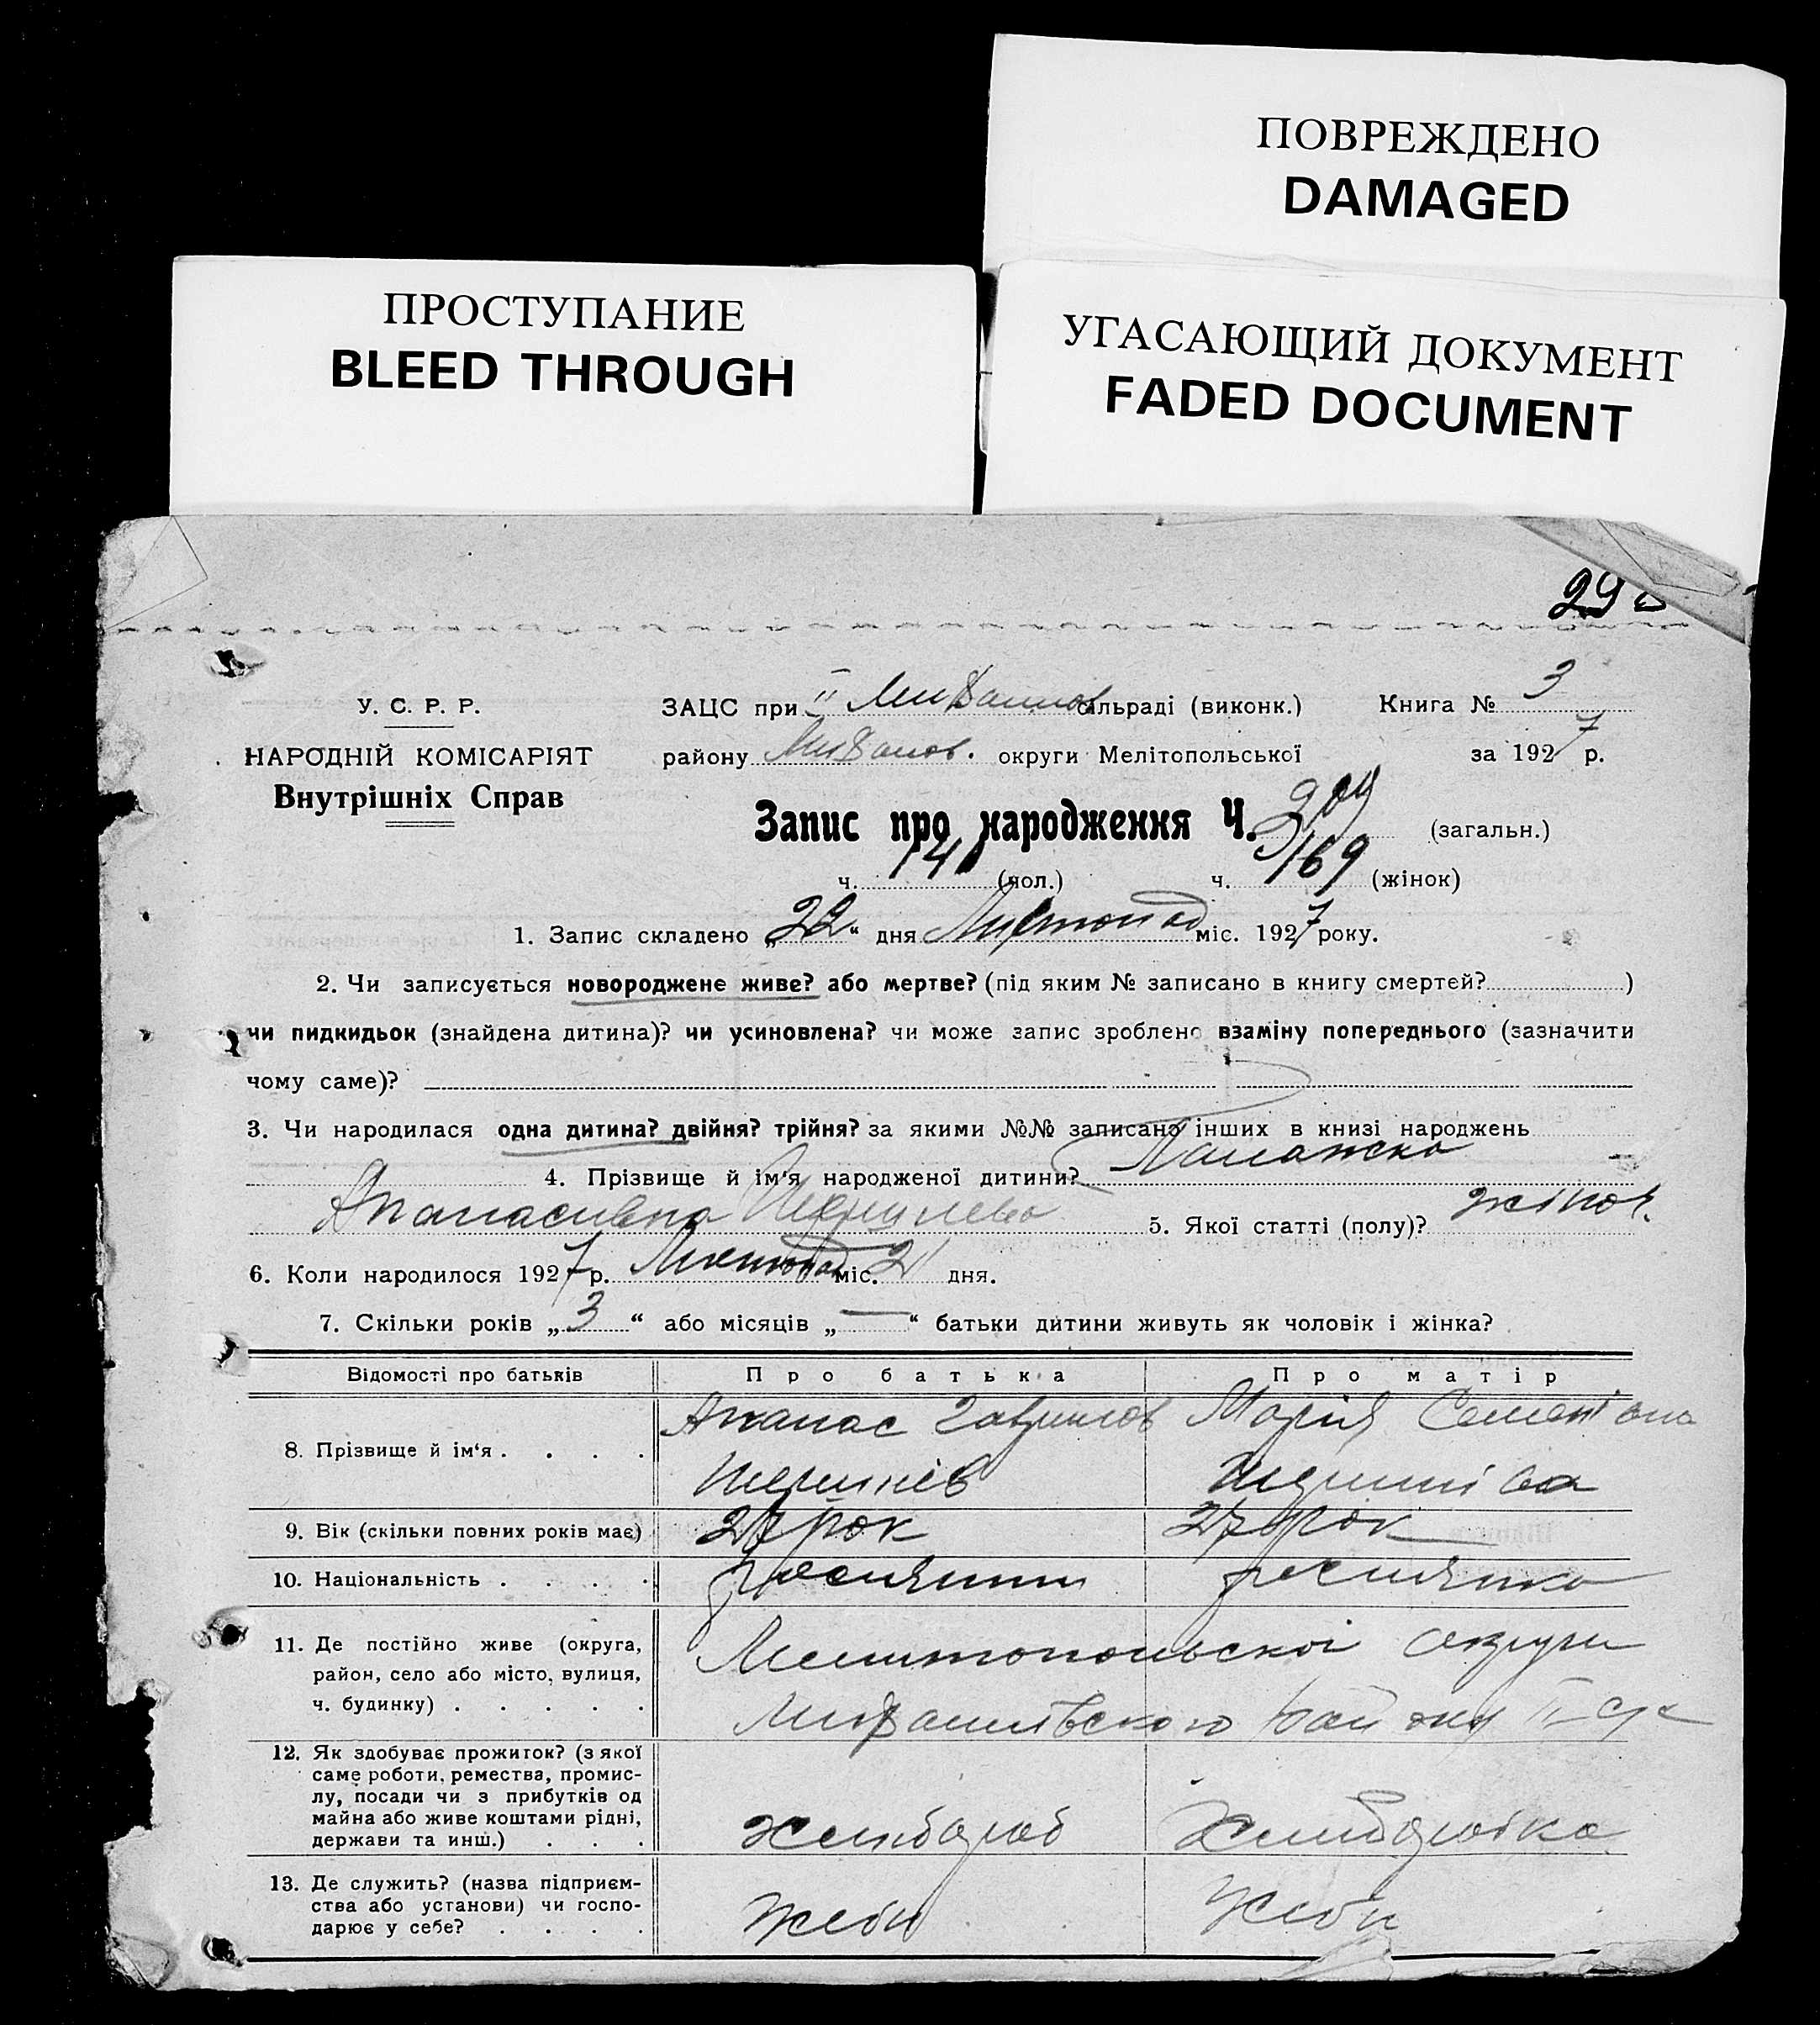 ПОВРЕЖДЕНО
DAMAGED
ПРОСТУПАНИЕ
BLEED THROUGH
УГАСАЮЩИЙ ДОКУМЕНТ
FADED DOCUMENT
У. С. Р. Р.
НАРОДНІЙ КОМІСАРІЯТ
Внутрішніх Справ
ЗАЦС при II сільраді (виконк.) Книга № 3
району округи Мелітопольської за 1927 р.
Запис про народження Ч. 309 (загальн.)
ч. 141 (чол.) ч. 169 (жінок)
1. Запис складено „22“ дня Листопад міс. 1927 року.
2. Чи записується новороджене живе? або мертве? (під яким № записано в книгу смертей? )
чи пидкидьок (знайдена дитина)? чи усиновлена? чи може запис зроблено взаміну попереднього (зазначити
чому саме)?
3. Чи народилася одна дитина? двійня? трійня? за якими №№ записано інших в книзі народжень
4. Прізвище й ім'я народженої дитини? Палажка
Апанасивна 5. Якої статті (полу)? жіноч.
6. Коли народилося 1927 р. Листопад міс. 21 дня.
7. Скільки років „3“ або місяців „—“ батьки дитини живуть як чоловік і жінка?
Відомості про батьків Про батька Про матір
8. Прізвище й ім'я . . . . Апанас Гаврилов Марія Семенівна
9. Вік (скільки повних років має) 27 рок 27 рок
10. Національність . . . . росиянин росиянка
11. Де постійно живе (округа,
район, село або місто, вулиця,
ч. будинку) . . . . .
Мелитопольскої округи
району II
12. Як здобуває прожиток? (з якої
саме роботи, ремества, промис-
лу, посади чи з прибутків од
майна або живе коштами рідні,
держави та инш.) . . .
хлибороб хлиборобка
13. Де служить? (назва підприєм-
ства або установи) чи госпо-
дарює у себе? . . . .